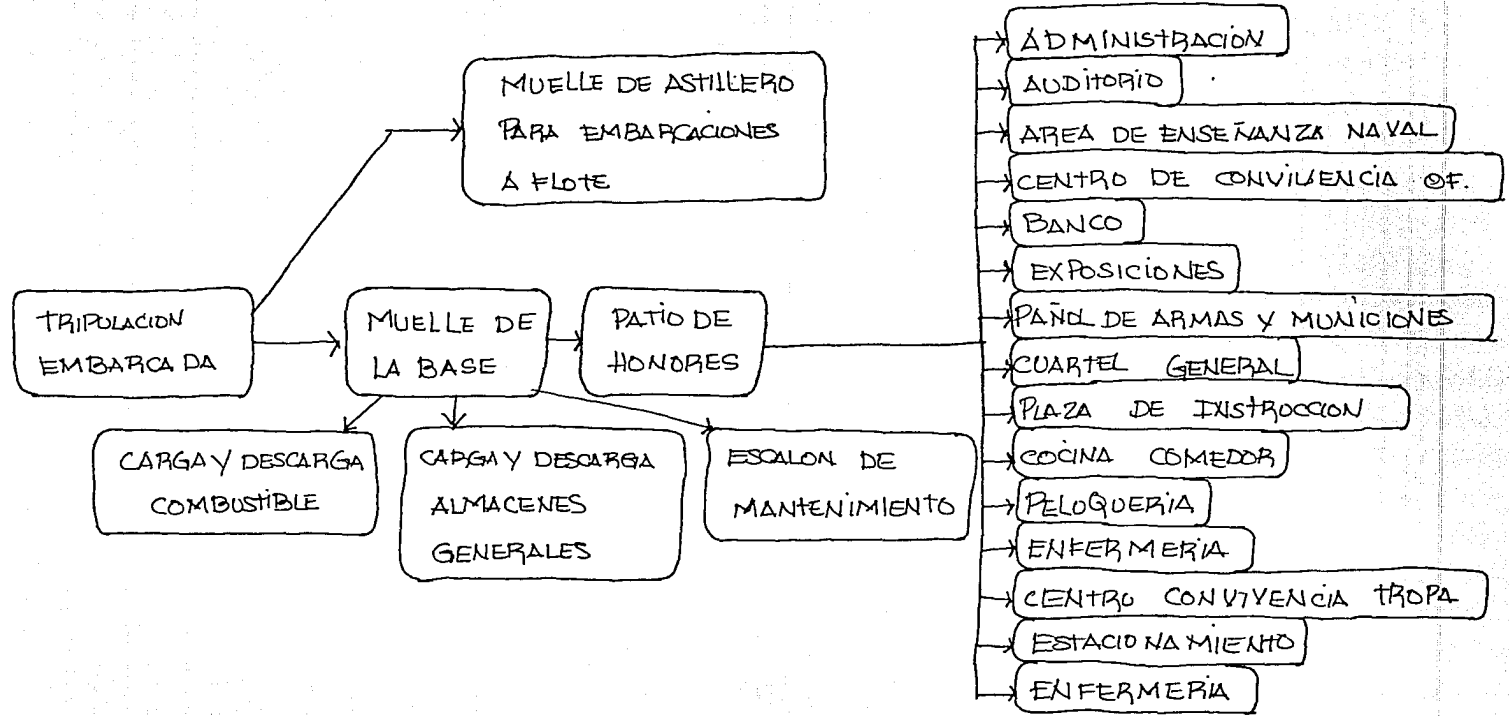 TRIPULACION
EMBARCADA
MUELLE DE ASTILLERO
PARA EMBARCACIONES
A FLOTE
MUELLE DE
LA BASE
PATIO DE
HONORES
CARGA Y DESCARGA
COMBUSTIBLE
CARGA Y DESCARGA
ALMACENES
GENERALES
ESCALON DE
MANTENIMIENTO
ADMINISTRACION
AUDITORIO
AREA DE ENSEÑANZA NAVAL
CENTRO DE CONVIVENCIA OF.
BANCO
EXPOSICIONES
PAÑOL DE ARMAS Y MUNICIONES
CUARTEL GENERAL
PLAZA DE INSTROCCION
COCINA COMEDOR
PELOQUERIA
ENFERMERIA
CENTRO CONVIVENCIA TROPA
ESTACIONAMIENTO
ENFERMERIA